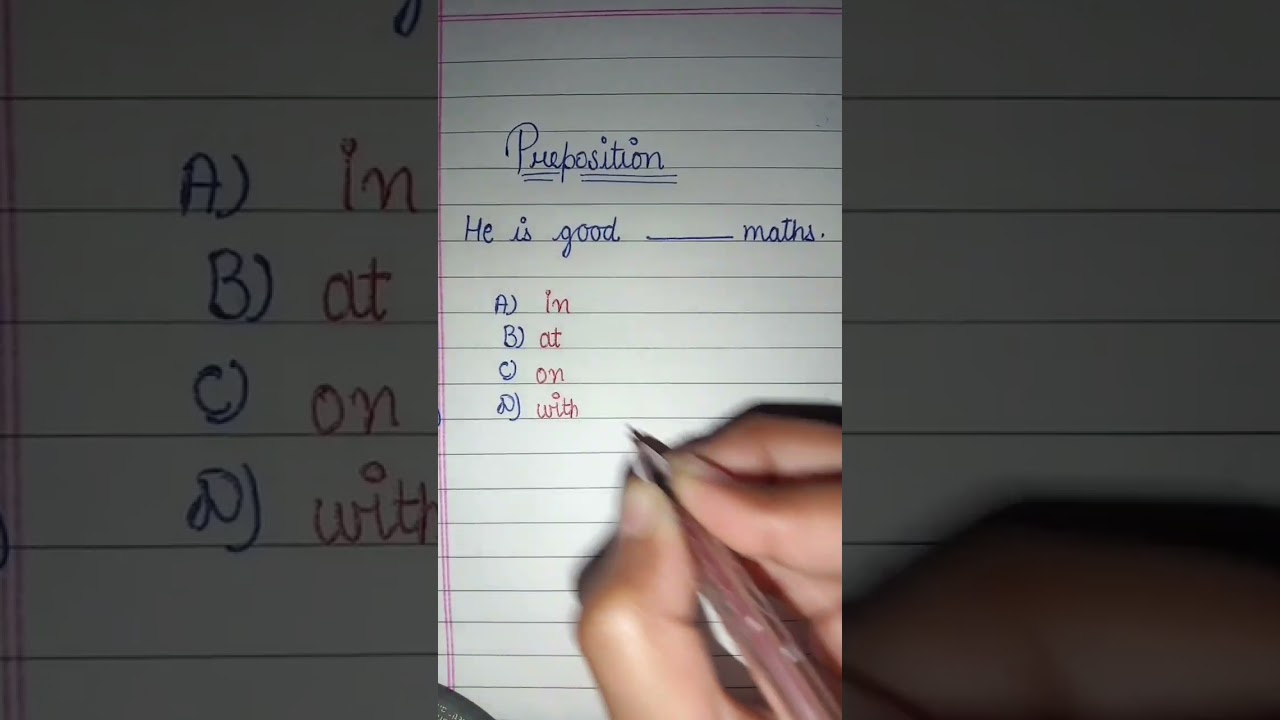 Preposition
He is good ______ maths.
A) in
B) at
C) on
D) with